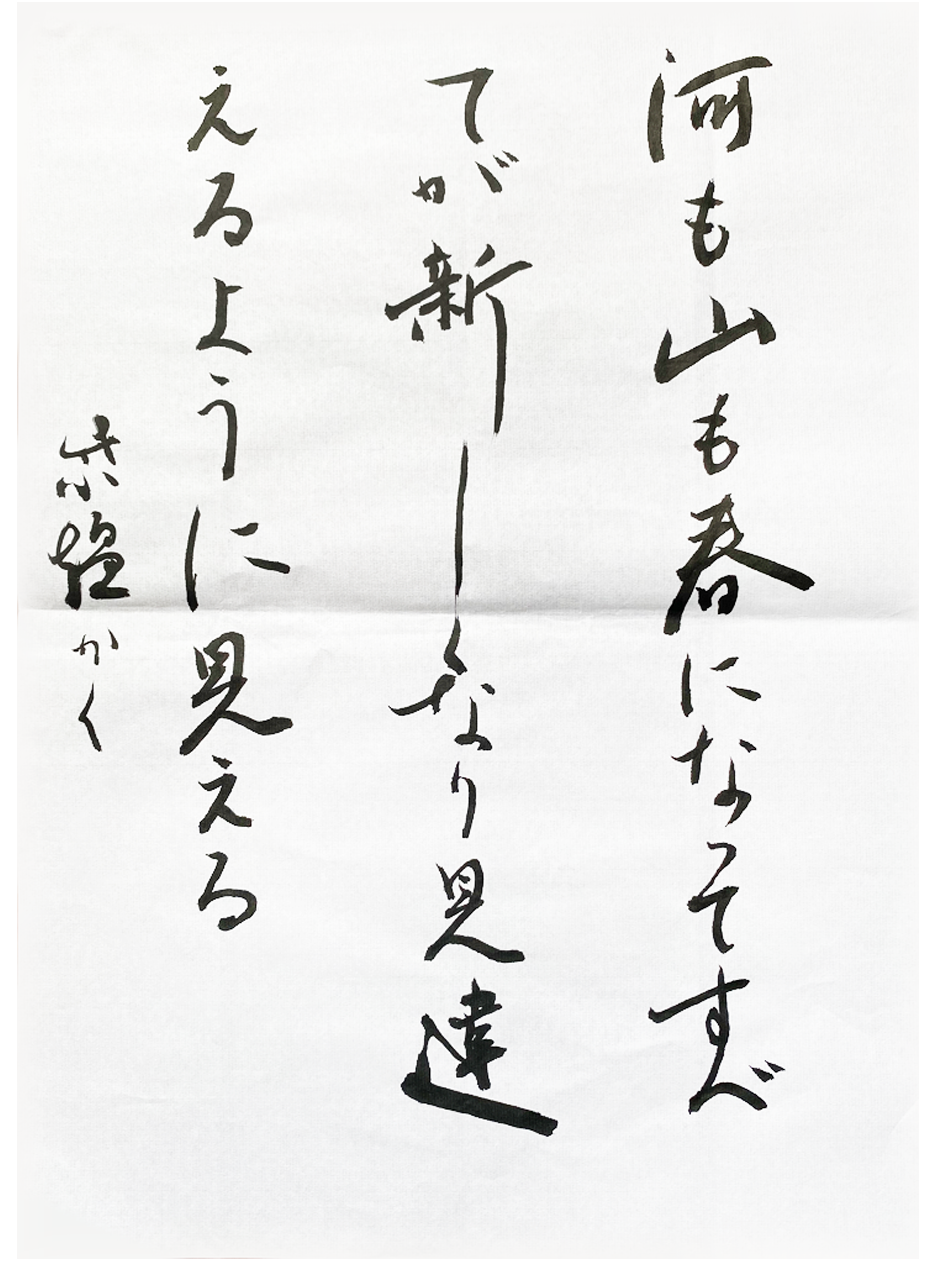 河も山も春になってすべ
てが新しくなり見違
えるように見える
紫かく